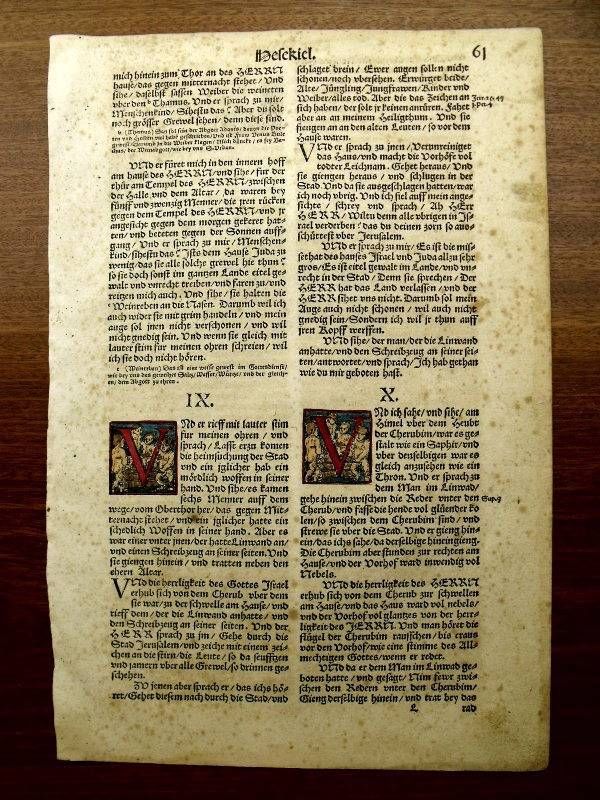 Hesekiel.
61
mich hinein zum Thor an des HERRN
hause/das gegen mitternacht stehet/ Vnd
sihe/ daselbst sassen Weiber die weineten
vber den Thamus. Vnd er sprach zu mir/
Menschenkind/ Sihestu das? Aber du solt
noch grösser Grewel sehen/ denn diese sind.
VNd er füret mich in den innern hoff
am hause des HERRN/ vnd sihe/ fur der
thür am Tempel des HERRN/ zwischen
der Halle vnd dem Altar/ da waren bey
fünff vnd zwenzig Menner/ die jren rücken
gegen dem Tempel des HERRN/ vnd jr
angesichte gegen dem morgen gekeret hat-
ten/ vnd beteten gegen der Sonnen auff-
gang/ Vnd er sprach zu mir/ Menschen-
kind/ sihestu das? Ists dem Hause Juda zu
wenig/ das sie alle solche grewel hie thun?
so sie doch sonst im gantzen Lande eitel ge-
walt vnd vnrecht treiben/ vnd faren zu/ vnd
reitzen mich auch. Vnd sihe/ sie halten die
Weinreben an die Nasen. Darumb wil ich
auch wider sie mit grim handeln/ vnd mein
auge sol jnen nicht verschonen/ vnd wil
nicht gnedig sein. Vnd wenn sie gleich mit
lauter stim fur meinen ohren schreien/ wil
ich sie doch nicht hören.
IX.
VNd er rieff mit lauter stim
fur meinen ohren/ vnd
sprach/ Lasse erzu komen
die heimsuchung der Stad
vnd ein iglicher hab ein
mördlich woffen in seiner
hand. Vnd sihe/ es kamen
sechs Menner auff dem
wege/ vom Oberthor her/ das gegen Mit-
ternacht stehet/ vnd ein jglicher hatte ein
schedlich Woffen in seiner hand. Aber es
war einer vnter jnen/ der hatte Linwand an/
vnd einen Schreibzeug an seiner seiten. Vnd
sie giengen hinein/ vnd tratten neben den
ehern Altar.
VNd die herrligkeit des Gottes Jsrael
erhub sich von dem Cherub vber dem
sie war/ zu der schwelle am Hause/ vnd
rieff dem/ der die Linwand anhatte/ vnd
den Schreibzeug an seiner seiten. Vnd der
HERR sprach zu jm/ Gehe durch die
Stad Jerusalem/ vnd zeiche mit einem zei-
chen an die stirn/ die Leute/ so da seufftzen
vnd jamern vber alle Grewel/ so drinnen ge-
schehen.
ZV jenen aber sprach er/ das ichs hö-
ret/ Gehet diesem nach durch die Stad/ vnd
schlaget drein/ Ewer augen sollen nicht
schonen/ noch vbersehen. Erwürget beide/
Alte/ Jüngling/ Jungfrawen/ Kinder vnd
Weiber/ alles tod. Aber die das Zeichen an
sich haben/ der solt jr keinen anrüren. Fahet
aber an an meinem Heiligthum. Vnd sie
fiengen an an den alten Leuten/ so vor dem
Hause waren.
VNd er sprach zu jnen/ Verunreiniget
das Haus/ vnd macht die Vorhöfe vol
todter Leichnam. Gehet heraus/ Vnd
sie giengen heraus/ vnd schlugen in der
Stad. Vnd da sie ausgeschlagen hatten/ war
ich noch vbrig. Vnd ich fiel auff mein ange-
sichte/ schrey vnd sprach/ Ah HErr
HERR/ Wiltu denn alle vbrigen in Js-
rael verderben? das du deinen zorn so aus-
schüttest vber Jerusalem.
VNd er sprach zu mir/ Es ist die mis-
sethat des hauses Jsrael vnd Juda allzu sehr
gros/ Es ist eitel gewalt im Lande/ vnd vn-
recht in der Stad/ Denn sie sprechen/ Der
HERR hat das Land verlassen/ vnd der
HERR sihet vns nicht. Darumb sol mein
Auge auch nicht schonen/ wil auch nicht
gnedig sein/ Sondern ich wil jr thun auff
jren Kopff werffen.
VNd sihe/ der man/ der die Linwand
anhatte/ vnd den Schreibzeug an seiner sei-
ten/ antwortet/ vnd sprach/ Ich hab gethan
wie du mir geboten hast.
X.
VNd ich sahe/ vnd sihe/ am
Himel vber dem Heubt
der Cherubim/ war es ge-
stalt wie ein Saphir/ vnd
vber denselbigen war es
gleich anzusehen wie ein
Thron. Vnd er sprach zu
dem Man im Linwad/
gehe hinein zwischen die Reder vnter den
Cherub/ vnd fasse die hende vol glüender ko
len/ so zwischen dem Cherubim sind/ vnd
strewe sie vber die Stad. Vnd er gieng hin-
ein/ das ichs sahe/ da derselbige hinein gieng.
Die Cherubim aber stunden zur rechten am
Hause/ vnd der Vorhof ward inwendig vol
Nebels.
VNd die herrligkeit des HERRN
erhub sich von dem Cherub zur schwellen
am Hause/ vnd das Haus ward vol nebels/
vnd der Vorhof vol glantzes von der herr-
ligkeit des HERRN. Vnd man höret die
flügel der Cherubim rausschen/ bis eraus
vor den Vorhof/ wie eine stimme des All-
mechtigen Gottes/ wenn er redet.
VNd da er dem Man im Linwad ge-
boten hatte/ vnd gesagt/ Nim fewr zwi-
schen den Redern vnter den Cherubim/
Gieng derselbige hinein/ vnd trat bey das
L
rad